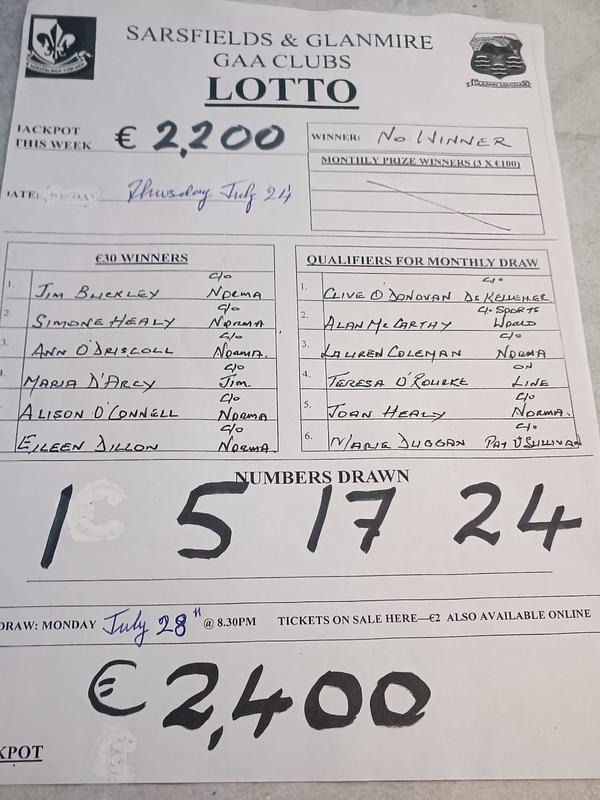 SARSFIELDS & GLANMIRE
GAA CLUBS
LOTTO
JACKPOT
THIS WEEK
€ 2,200
WINNER: NO WINNER
MONTHLY PRIZE WINNERS (3 X €100)
DATE:
Thursday July 24
€30 WINNERS
1. JIM BUCKLEY C/O NORMA
2. SIMONE HEALY C/O NORMA
3. ANN O'DRISCOLL C/O NORMA.
4. MARIA D'ARCY C/O JIM.
ALISON O'CONNELL C/O NORMA
EILEEN DILLON C/O NORMA
QUALIFIERS FOR MONTHLY DRAW
1. CLIVE O'DONOVAN C/O DS KELLEHER
2. ALAN MCCARTHY C/O SPORTS WORLD
3. LAUREN COLEMAN C/O NORMA
4. TERESA O'ROURKE ON LINE
5. JOAN HEALY C/O NORMA.
6. MARIE DUGGAN C/O PAT O'SULLIVAN
NUMBERS DRAWN
1 5 17 24
DRAW: MONDAY July 28th @ 8.30PM TICKETS ON SALE HERE—€2 ALSO AVAILABLE ONLINE
€2,400
KPOT